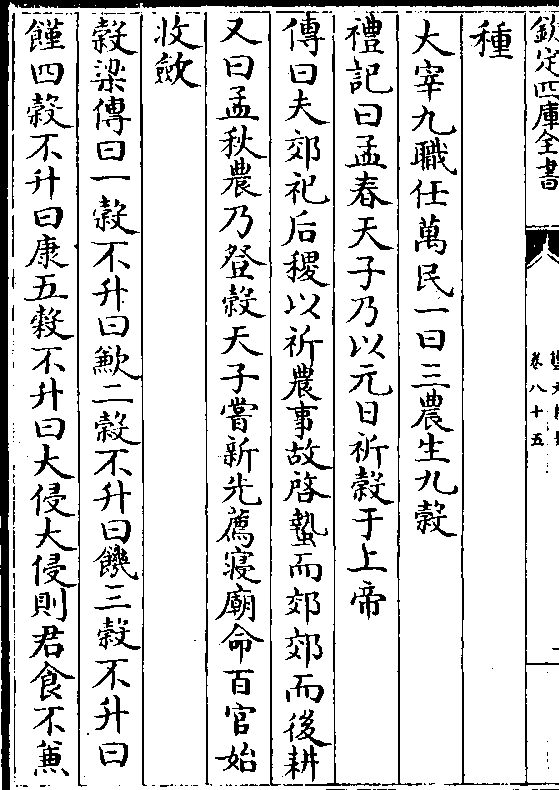 欽定四庫全書
卷八十五
種
大宰九職任萬民一曰三農生九穀
禮記曰孟春天子乃以元日祈穀于上帝
傳曰夫郊祀后稷以祈農事故啓蟄而郊郊而後耕
又曰孟秋農乃登穀天子嘗新先薦寢廟命百官始
收歛
穀梁傳曰一穀不升曰歉二穀不升曰饑三穀不升曰
饉四穀不升曰康五穀不升曰大侵大侵則君食不蒹